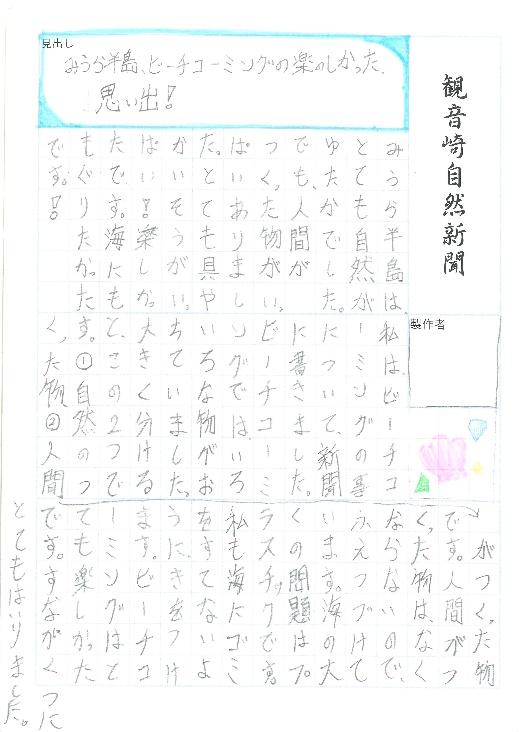 観音崎自然新聞
製作者
見出し
みうら半島、ビーチコーミングの楽しかった、
思い出!
みうら半島は、
とても自然が
ゆたかでした。
でも、人間が
つくった物がいっ
ぱいありまし
た。とても具や
かいそうがいっ
ぱい!楽しかっ
たです。海にも
もぐりたかった
です。!!
私は、ビーチコ
ーミングの事
について、新聞
に書きました。
ビーチコーミ
ングでは、いろ
いろな物がお
ちていました。
大きく分ける
と、この2つで
す。①自然のつ
くった物②人間
がつくった物
です。人間がつ
くった物は、なく
ならないので、
ふえつづけて
います。海の大
くの問題は、プ
ラスチックです。
私も海にゴミ
をすてないよ
うに、きをつけ
ます。ビーチコ
ーミングはと
ても楽しかった
です。すながくつに
とてもはいりました。